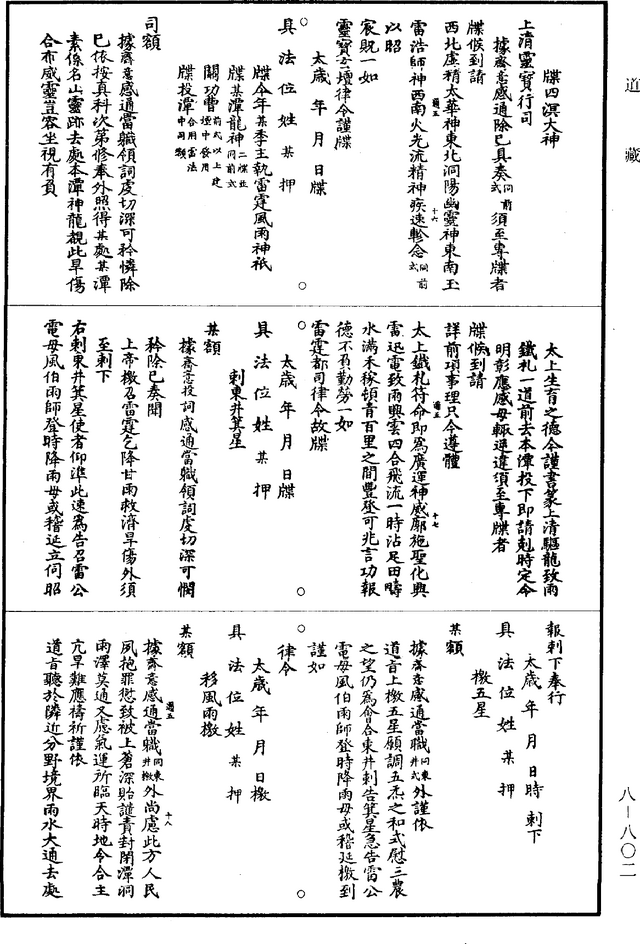 道藏
牒四溟大神
上清靈寶行司
據齋意感通除已具奏同前式須至專牒者
牒候到請
西北虛精太華神東北洞陽幽靈神東南玉
雷浩師神西南火光流精神疾速軫念同前式
以昭
宸貺一如
靈寶玄壇律令謹牒
太歲 年 月 日牒
具 法 位 姓 某 押
牒今年某季主執雷霆風雨神祇
牒某潭龍神二牒並同前式
關功曹前式以上建壇中發用
牒投潭合用雷法中司額
司額
據齋意感通當職領詞虔切深可矜憐除
已依按真科次第修奉外照得某處某潭
素係名山靈跡去處本潭神龍覩此旱傷
合布威靈豈容坐視有負
太上生育之德今謹書篆上清驅龍致雨
鐵札一道前去本潭投下即請剋時定今
明彰應感毋輒違違須至專牒者
牒候到請
詳前項事理只今遵體
太上鐵札符命即爲廣運神威廓施聖化興
雷迅電致雨興雲四合飛流一時沾足田疇
水滿禾稼頓青百里之間豐登可兆言功報
德不負勤勞一如
雷霆都司律令故牒
太歲 年 月 日牒
具 法 位 姓 某 押
剌東井箕星
某額
據齋意投詞感通當職領詞虔切深可憫
矜除已奏聞
上帝檄召雷霆乞降甘雨救濟旱傷外須
至剌下
右剌東井箕星使者仰準此速爲告召雷公
電母風伯雨師登時降雨毋或稽延立伺昭
報剌下奉行
太歲 年 月 日時 剌下
具 法 位 姓 某 押
檄五星
某額
據齋意感通當職同東井式外謹依
道旨上檄五星願調五炁之和式慰三農
之望仍爲會合東井剌告箕星急告雷公
電母風伯雨師登時降雨毋或稽延檄到
謹如
律令
太歲 年 月 日檄
具 法 位 姓 某 押
移風雨檄
某額
據齋意感通當職同東井檄外尚慮此方人民
夙抱罪愆致被上蒼深貽譴責封閉潭洞
雨澤莫通又慮氣運所臨天時地令合主
亢旱難應禱祈謹依
道旨聽於隣近分野境界雨水大通去處
八—八〇二